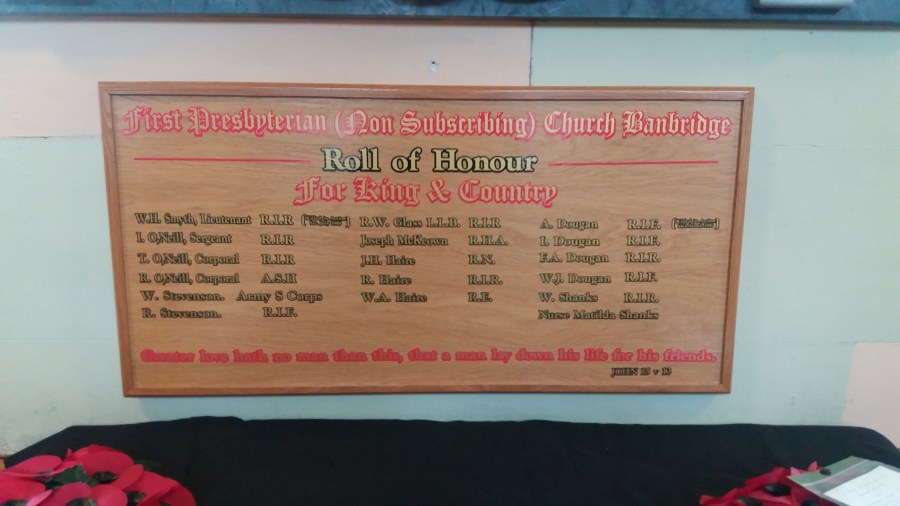 First Presbyterian (Non Subscribing) Church Banbridge
Roll of Honour
For King & Country
W.H. Smyth, Lieutenant R.I.R
I. O,Neill, Sergeant R.I.R
T. O,Neill, Corporal R.I.R
R. O,Neill, Corporal A.S.H
W. Stevenson. Army S Corps
R. Stevenson. R.I.F.
R.W. Glass L.L.B. R.I.R
Joseph McKeown R.H.A.
J.H. Haire R.N.
R. Haire R.I.R.
W.A. Haire R.E.
A. Dougan R.I.F.
I. Dougan R.I.F.
F.A. Dougan R.I.R.
W.J. Dougan R.I.F.
W. Shanks R.I.R.
Nurse Matilda Shanks
Greater love hath no man than this, that a man lay down his life for his friends.
JOHN 15 v 13